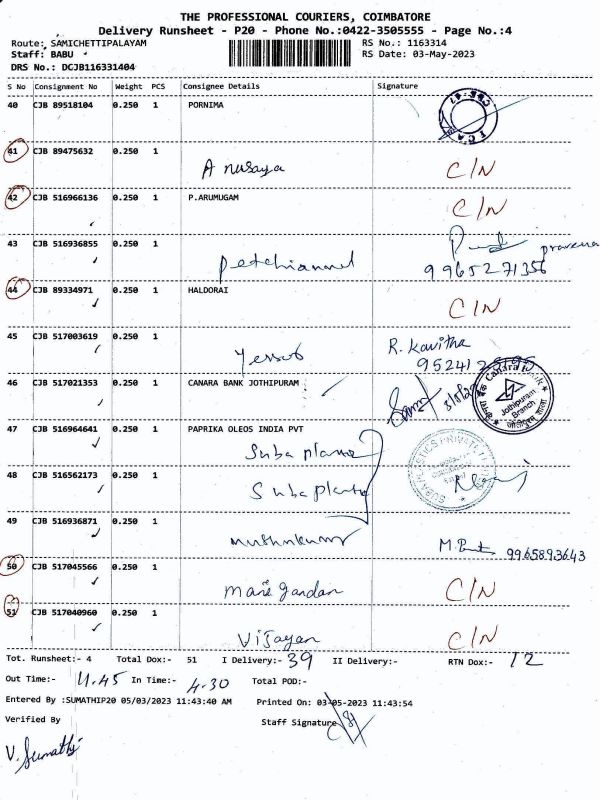 THE PROFESSIONAL COURIERS, COIMBATORE
Delivery Runsheet - P20 - Phone No.:0422-3505555 - Page No.:4
Route: SAMICHETTIPALAYAM RS No.: 1163314
Staff: BABU RS Date: 03-May-2023
DRS No.: DCJB116331404
S No Consignment No Weight PCS Consignee Details Signature
40 CJB 89518104 0.250 1 PORNIMA
41 CJB 89475632 0.250 1
Anusaya C/N
42 CJB 516966136 0.250 1 P.ARUMUGAM
C/N
43 CJB 516936855 0.250 1
Petchiammal 9965271356
44 CJB 89334971 0.250 1 HALDORAI
C/N
45 CJB 517003619 0.250 1 R. Kavitha
46 CJB 517021353 0.250 1 CANARA BANK JOTHIPURAM
Canara Bank
Jothipuram
Branch
47 CJB 516964641 0.250 1 PAPRIKA OLEOS INDIA PVT
Suba plama
48 CJB 516562173 0.250 1
Suba plants
49 CJB 516936871 0.250 1
9965893643
50 CJB 517045566 0.250 1
Mari gandan C/N
51 CJB 517040960 0.250 1
Vijayan C/N
Tot. Runsheet:- 4 Total Dox:- 51 I Delivery:- 39 II Delivery:- RTN Dox:- 12
Out Time:- 11.45 In Time:- 4.30 Total POD:-
Entered By :SUMATHIP20 05/03/2023 11:43:40 AM Printed On: 03-05-2023 11:43:54
Verified By Staff Signature
V. Sumathi